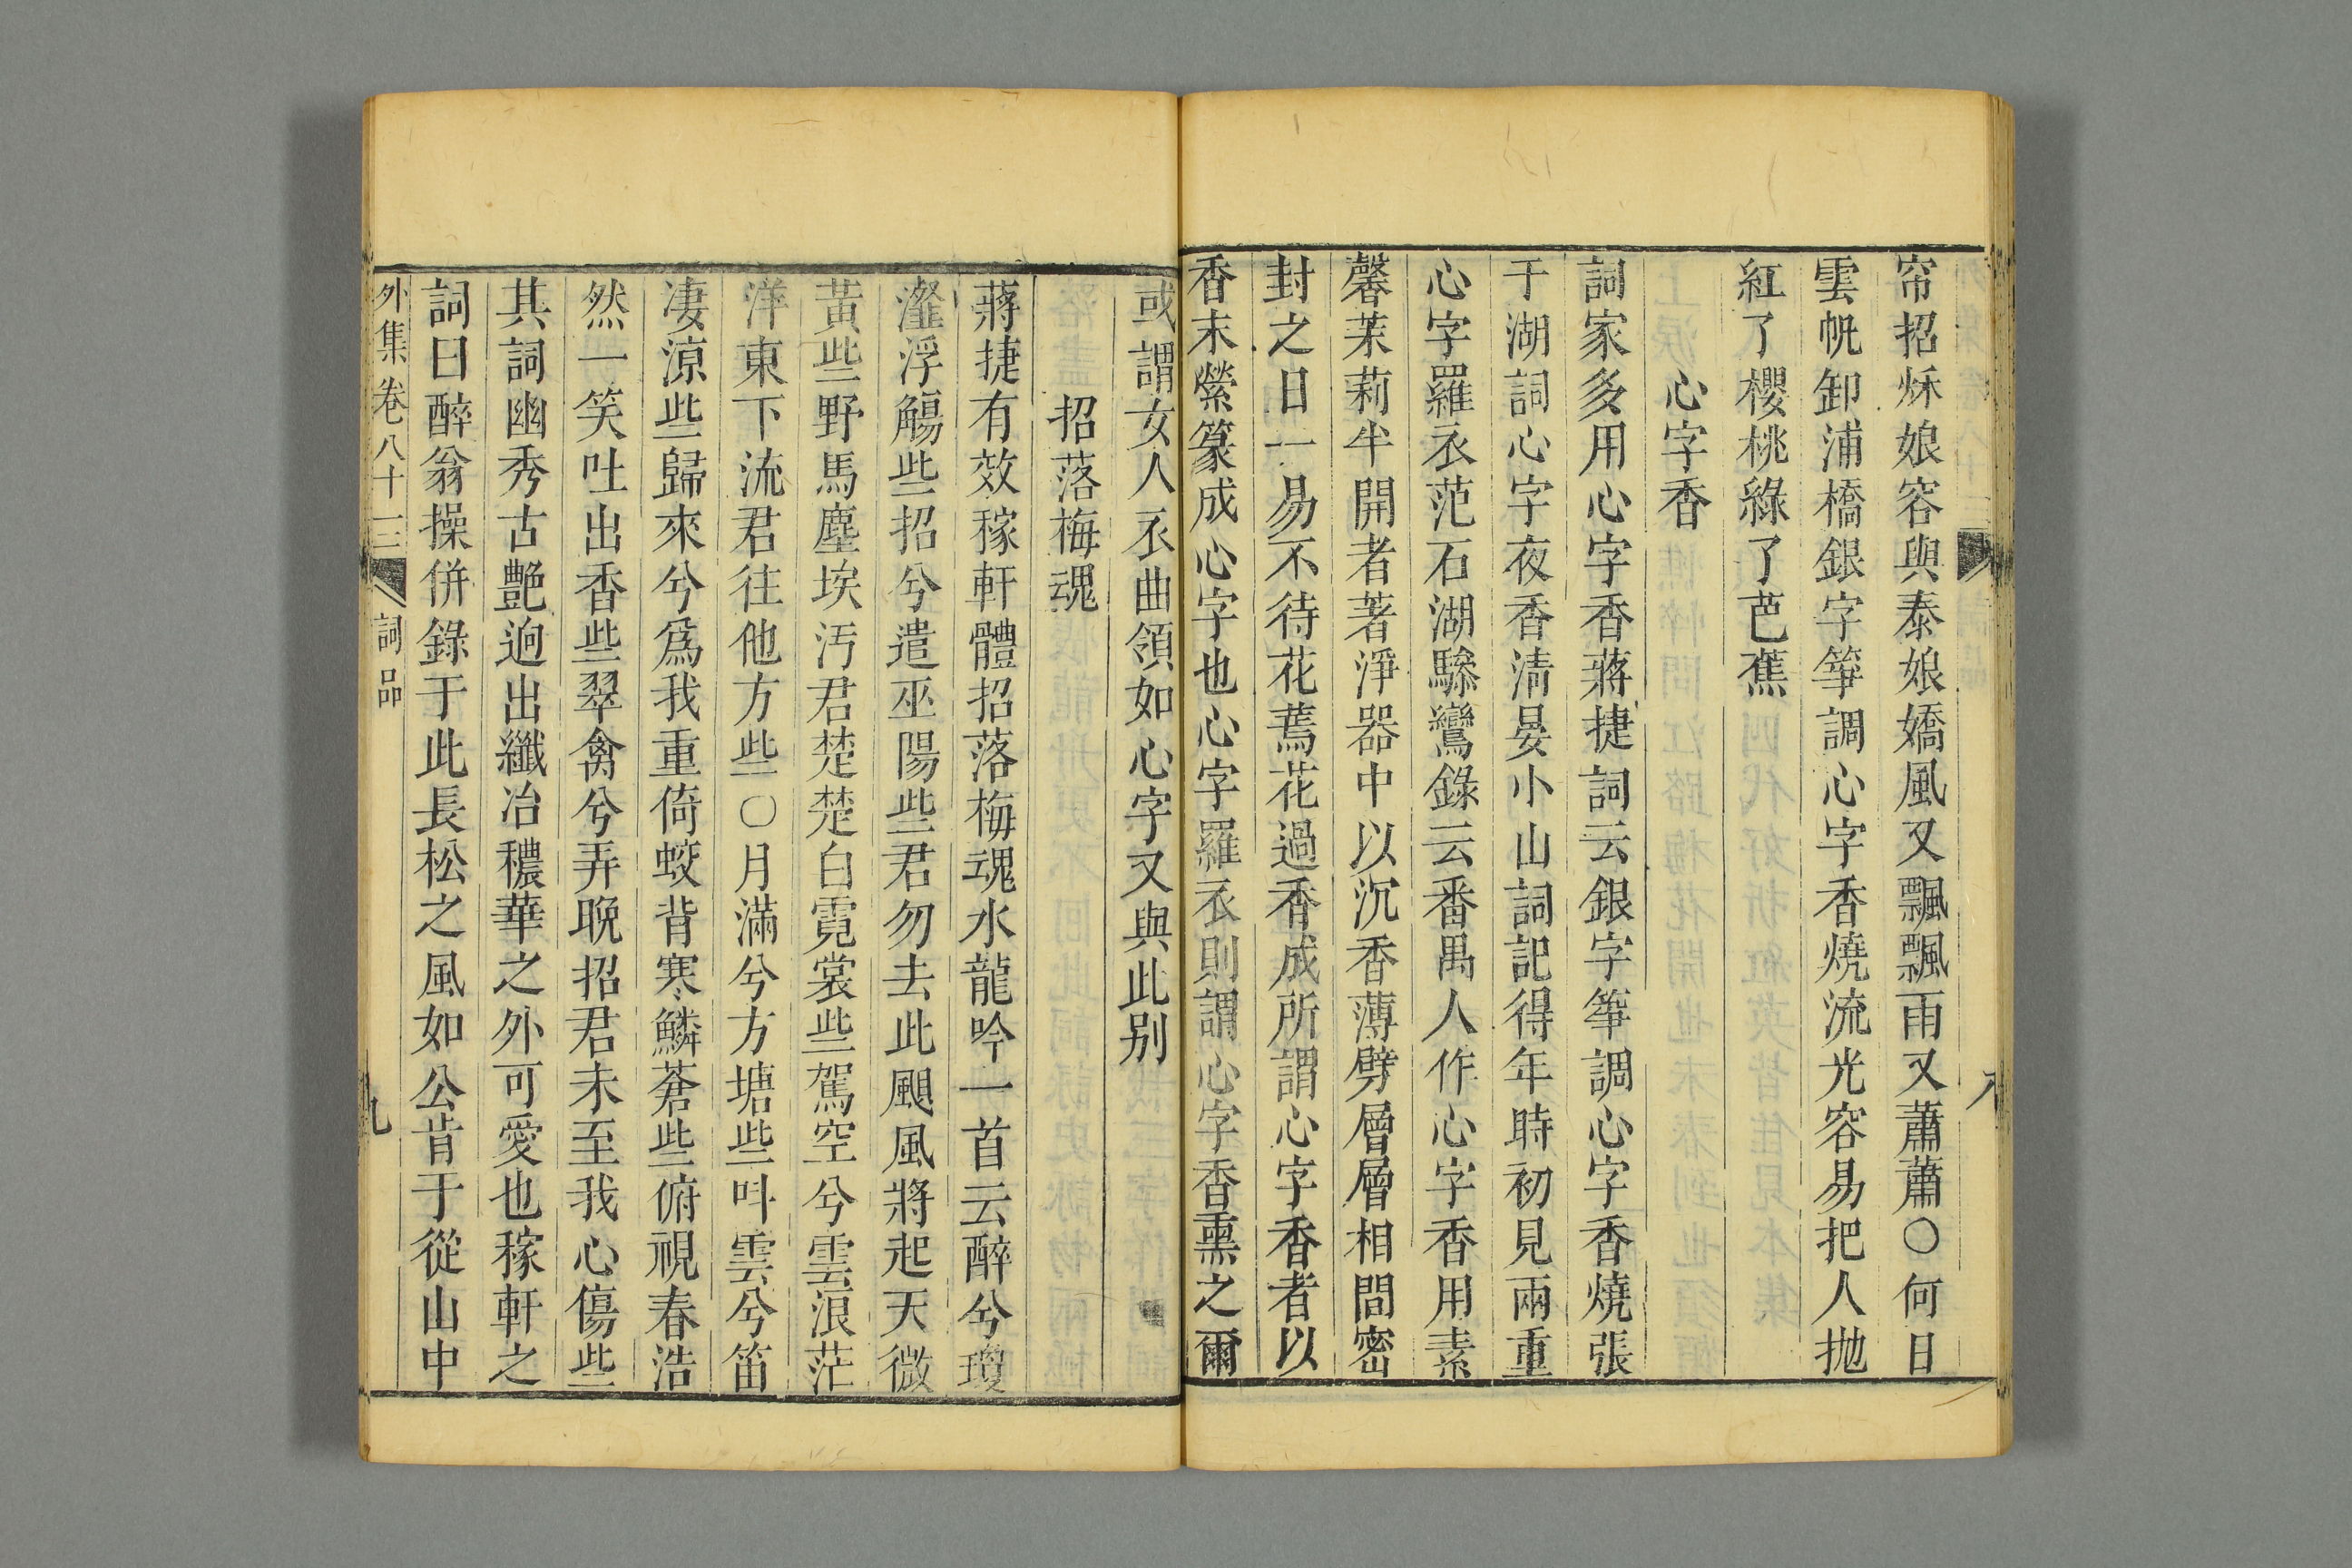 帘招秌娘容與泰娘嬌風又飄飄雨又蕭蕭〇何日
雲帆卸浦橋銀字箏調心字香燒流光容易把人拋
紅了櫻桃綠了芭蕉
心字香
詞家多用心字香蔣捷詞云銀字箏調心字香燒張
于湖詞心字夜香清晏小山詞記得年時初見兩重
心字羅衣范石湖驂鸞錄云番禺人作心字香用素
馨茉莉半開者著淨器中以沉香薄劈層層相間密
封之日一易不待花蔫花過香成所謂心字香者以
香末縈篆成心字也心字羅衣則謂心字香熏之爾
八
或謂女人衣曲領如心字又與此别
招落梅魂
蔣捷有效稼軒體招落梅魂水龍吟一首云醉兮瓊
瀣浮觴些招兮遣巫陽些君勿去此颶風將起天微
黃些野馬塵埃汚君楚楚白霓裳些駕空兮雲浪茫
洋東下流君往他方些〇月滿兮方塘些呌雲兮笛
凄涼些歸來兮爲我重倚蛟背寒鱗蒼些俯視春浩
然一笑吐出香些翠禽兮弄晚招君未至我心傷些
其詞幽秀古艶逈出纖冶穠華之外可愛也稼軒之
詞曰醉翁操併錄于此長松之風如公肯于從山中
外集卷八十三 詞品 九